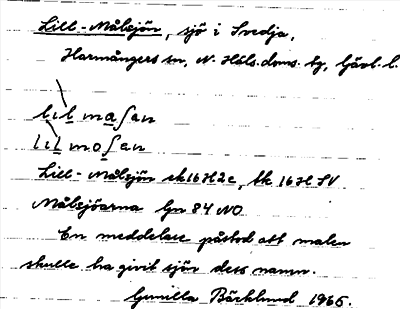 Lill-Målsjön, sjö i Svedja,
Harmångers sn, N. Häls. doms. tg, Gävl. l.
lıl maʃan
lıl moʃan
Lill-Målsjön ek16H2c, tk 16H SV
Målsjöarna Gn 84 NO
En meddelare påstod att malen
skulle ha givit sjön dess namn.
Gunilla Bäcklund 1965.